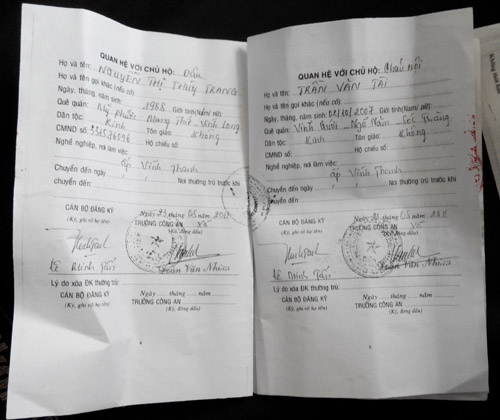 QUAN HỆ VỚI CHỦ HỘ: Dâu
Họ và tên: NGUYỄN THỊ THÙY TRANG
Họ và tên gọi khác (nếu có):
Ngày, tháng, năm sinh: 1988 Giới tính (Nam/ nữ):
Quê quán: Mỹ phước Mang Thít Vĩnh Long
Dân tộc: Kinh Tôn giáo: không
CMND số: Hộ chiếu số:
Nghề nghiệp, nơi làm việc:
ấp Vĩnh Thanh
Chuyển đến ngày / / Nơi thường trú trước khi
chuyển đến:
Ngày 23 tháng 05 năm
CÁN BỘ ĐĂNG KÝ TRƯỞNG CÔNG AN
(Ký, ghi rõ họ tên) (Ký, đóng dấu)
Lê Minh Tấn
Lý do xóa ĐK thường trú:
Ngày ..... tháng ..... năm
CÁN BỘ ĐĂNG KÝ TRƯỞNG CÔNG AN
(Ký, ghi rõ họ tên) (Ký, đóng dấu)
QUAN HỆ VỚI CHỦ HỘ: Cháu nội
Họ và tên: TRẦN VĂN TÀI
Họ và tên gọi khác (nếu có):
Ngày, tháng, năm sinh: /10/2007 Giới tính (Nam/ nữ):
Quê quán: Vĩnh Quới Ngã Năm Sóc Trăng
Dân tộc: Kinh Tôn giáo: không
CMND số: Hộ chiếu số:
Nghề nghiệp, nơi làm việc:
ấp Vĩnh Thanh
Chuyển đến ngày / / Nơi thường trú trước khi
chuyển đến:
Ngày tháng 05 năm
CÁN BỘ ĐĂNG KÝ TRƯỞNG CÔNG AN
(Ký, ghi rõ họ tên) (Ký, đóng dấu)
Lê Minh Tấn
Lý do xóa ĐK thường trú:
Ngày ..... tháng ..... năm
CÁN BỘ ĐĂNG KÝ TRƯỞNG CÔNG AN
(Ký, ghi rõ họ tên) (Ký, đóng dấu)